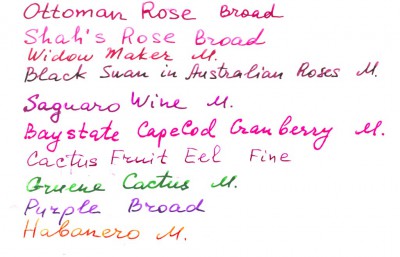 Ottoman Rose Broad
Shah's Rose Broad
Widow Maker M.
Black Swan in Australian Roses M.
Saguaro Wine M.
Baystate CapeCod Cranberry M.
Cactus Fruit Eel Fine
Gruene Cactus M.
Purple Broad
Habanero M.